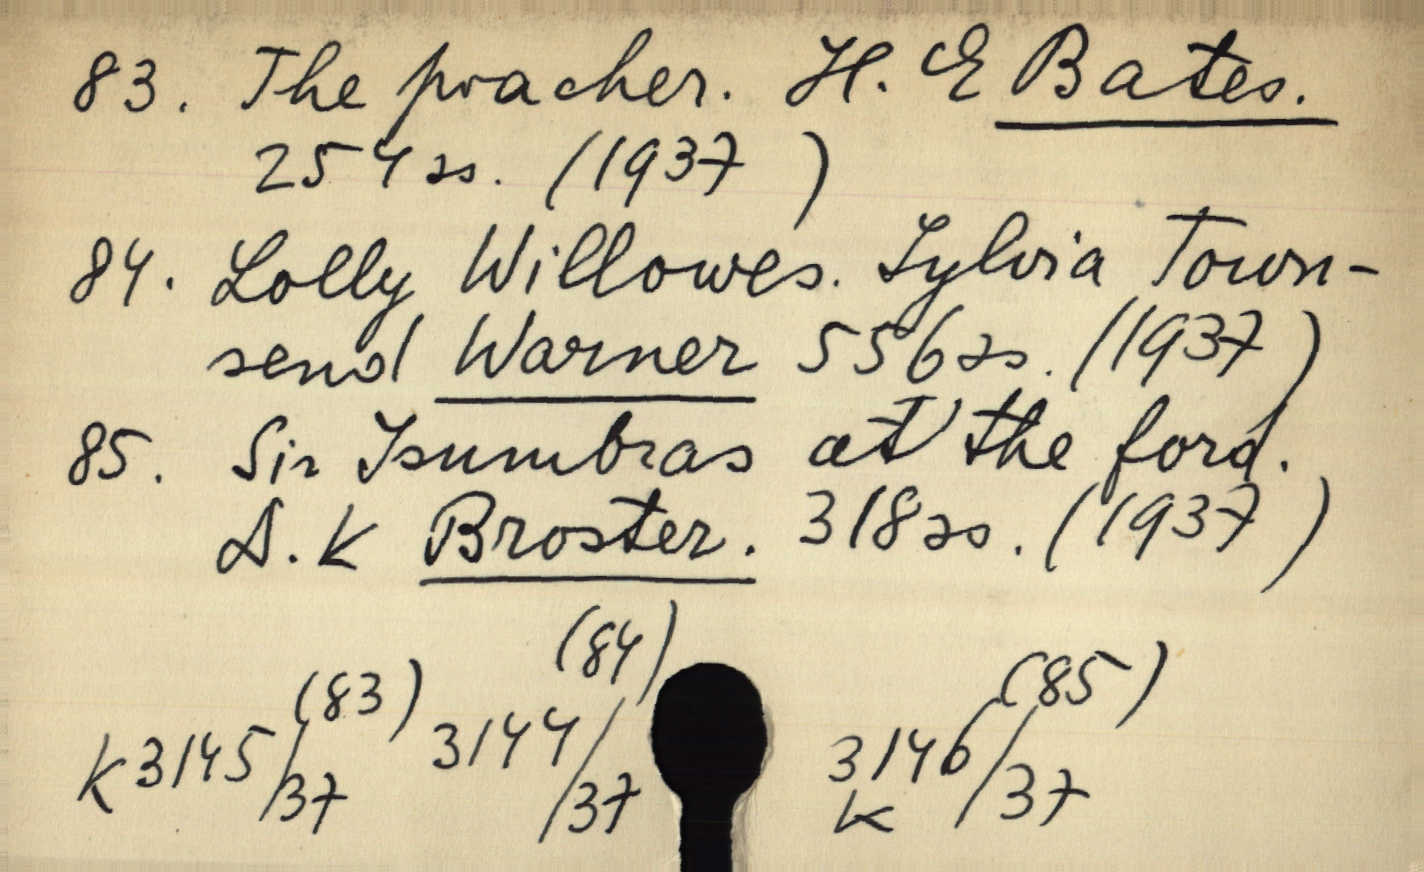 83. The poacher. H. E Bates.
254 ss. (1937 )
84. Lolly Willowes. Sylvia Town-
send Warner 556 ss. (1937 )
85. Sir Isumbras at the ford.
D. K Broster. 318 ss. (1937 )
(83) (84) (85)
K 3145/37 3144/37 3146/37
K